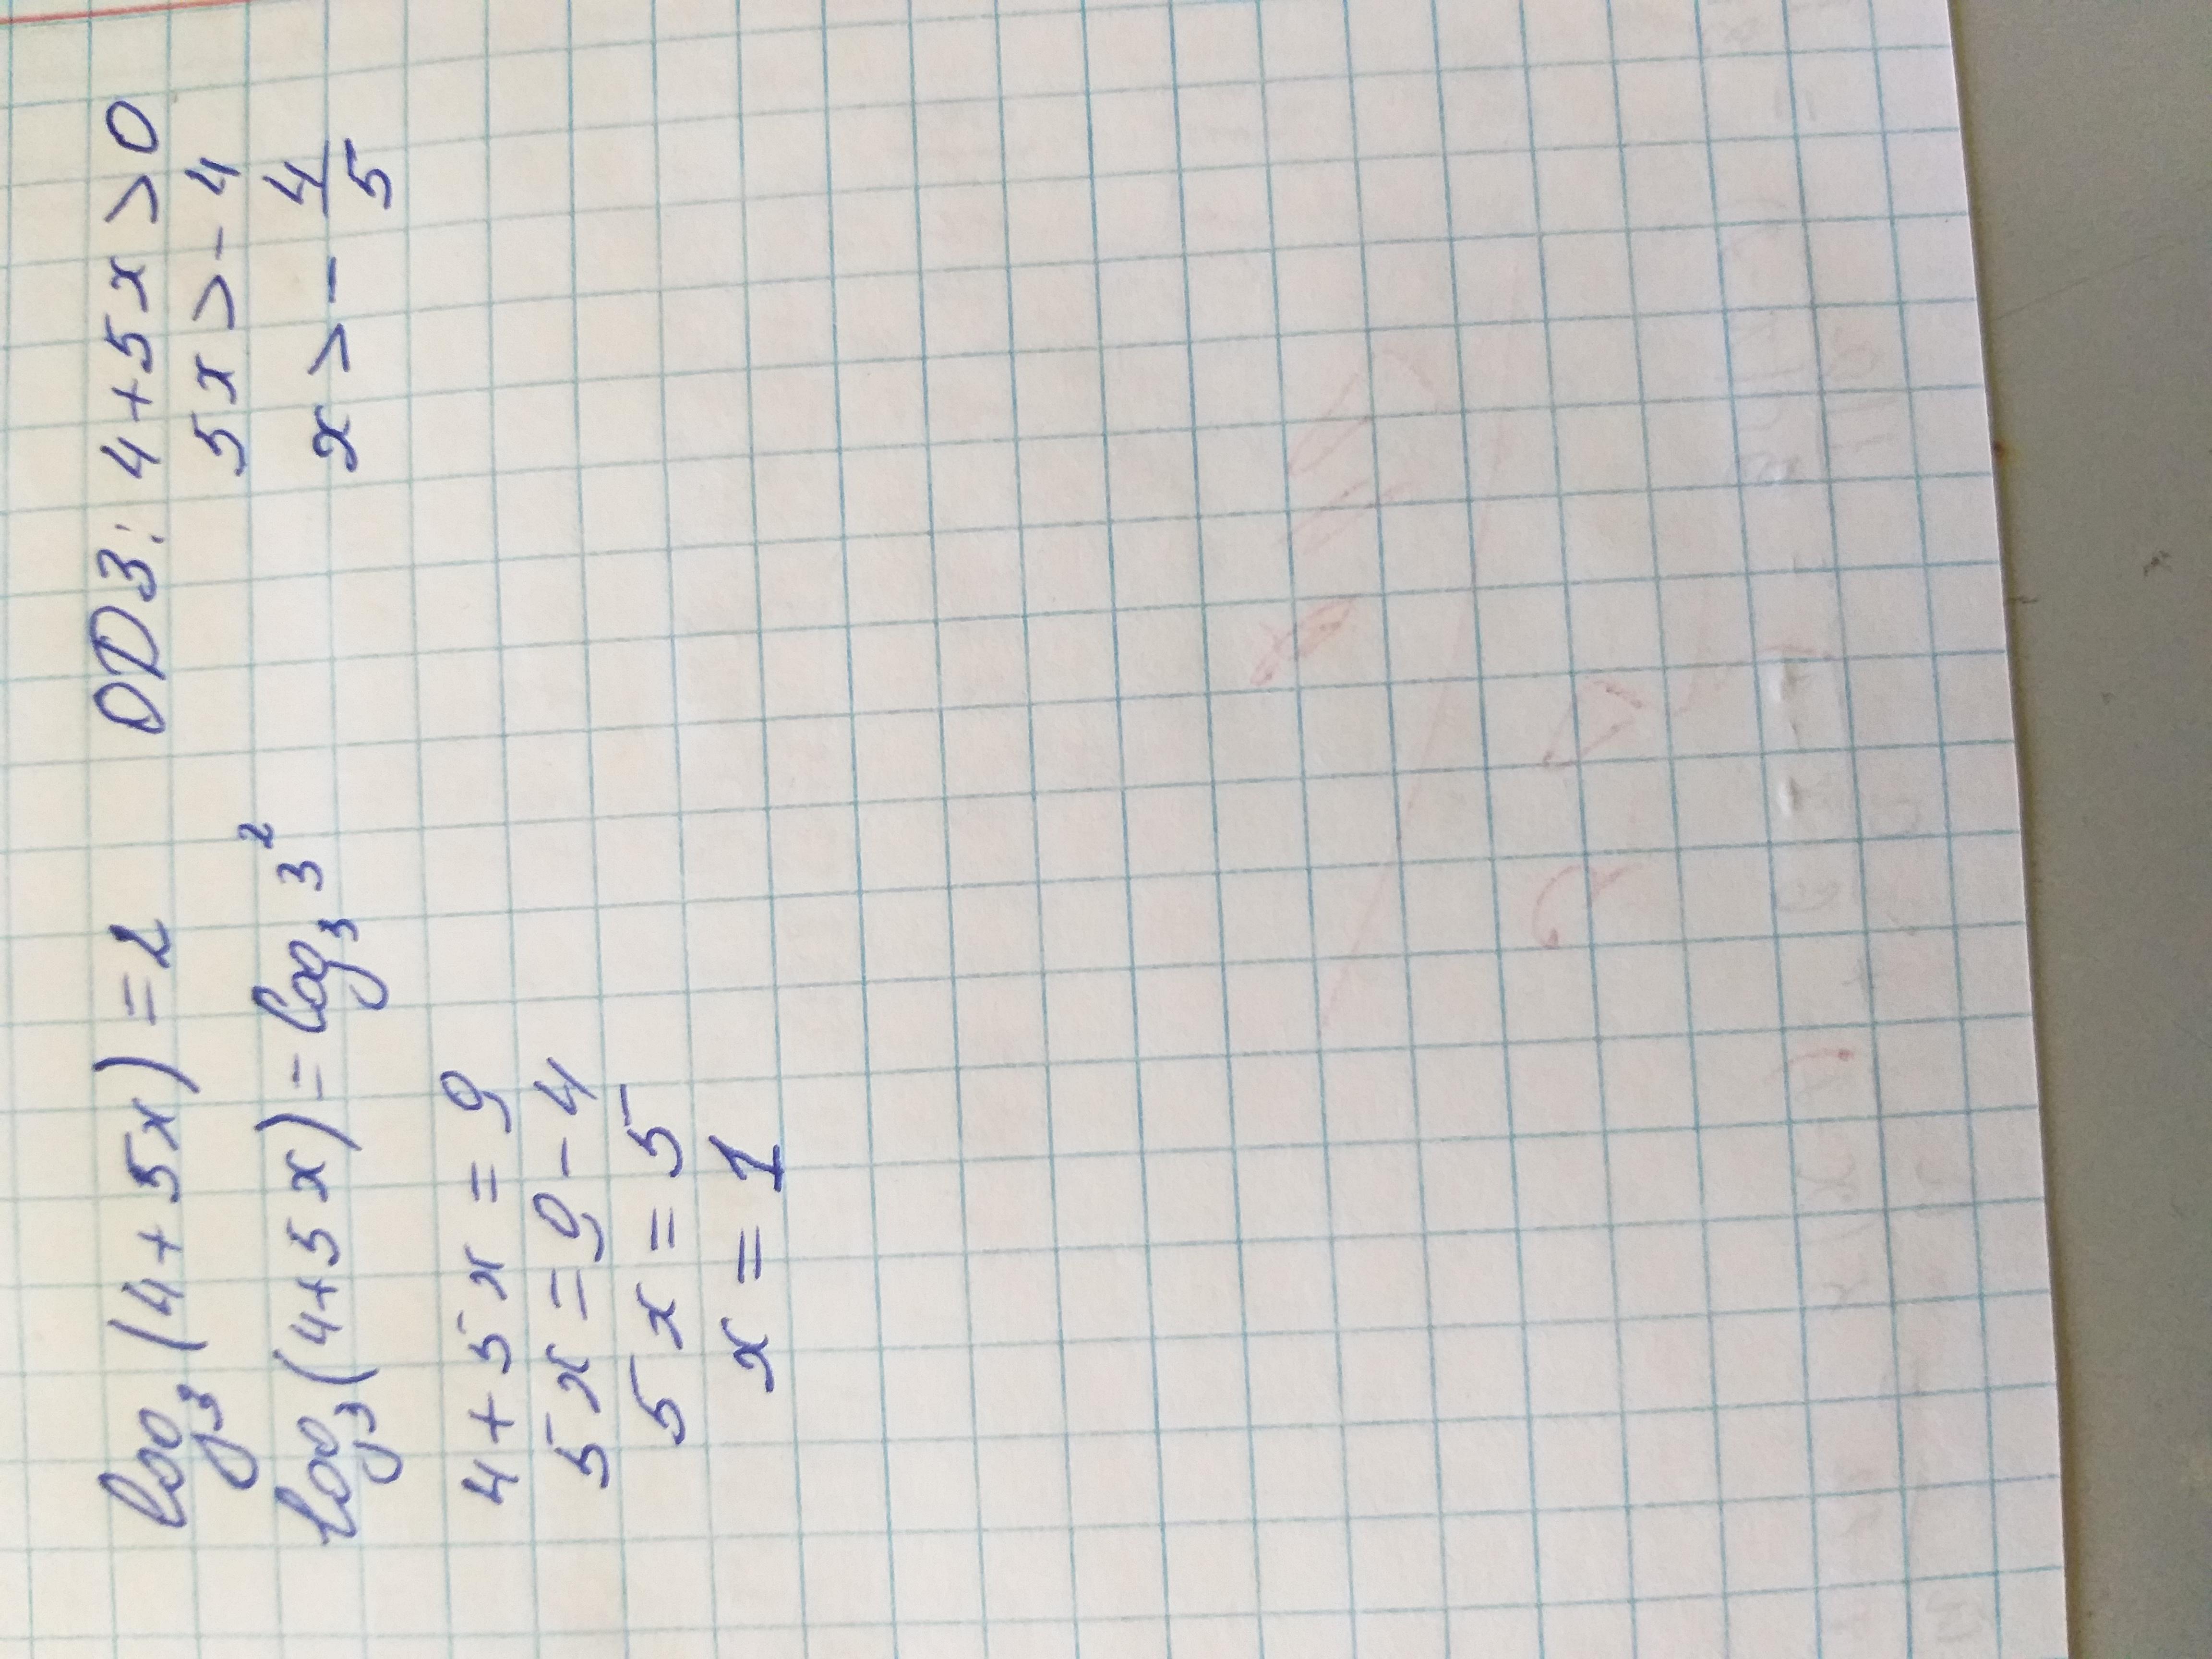 log₃(4+5x)=2 ОДЗ: 4+5x>0
5x>-4
log₃(4+5x)=log₃3² x>-4/5
4+5x=9
5x=9-4
5x=5
x=1